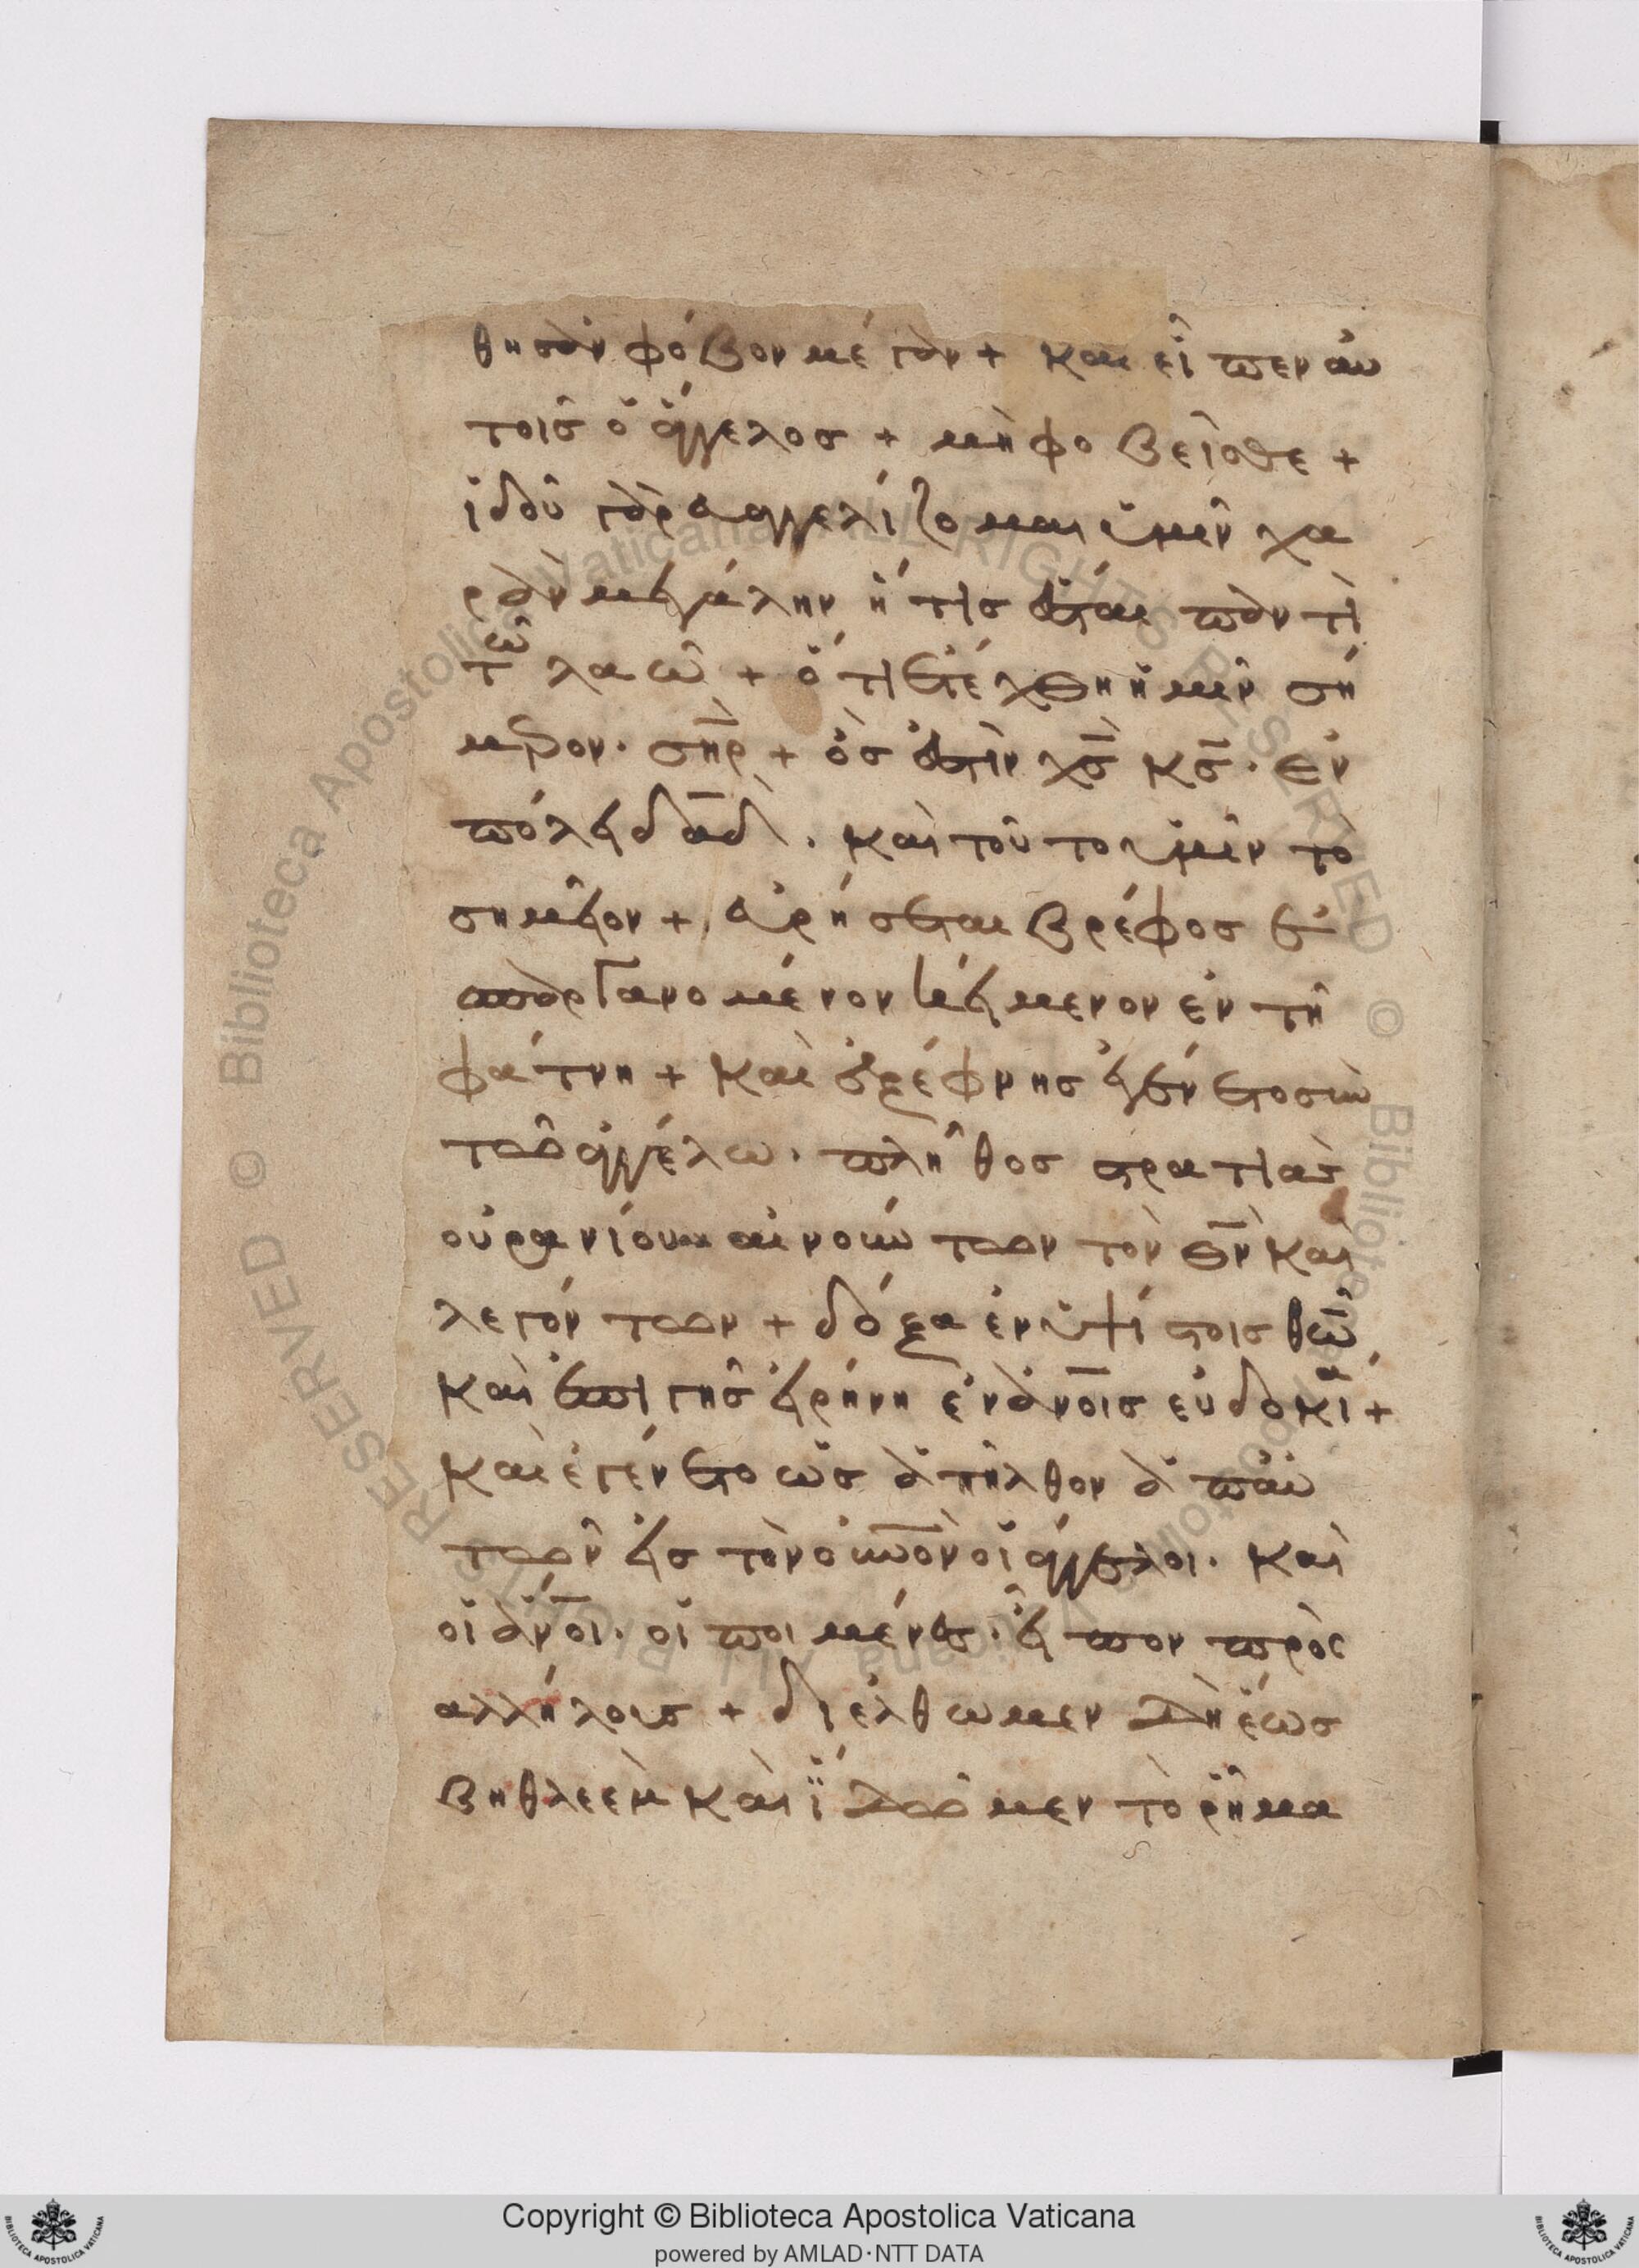 θησαν φόβον μέγαν + και εἶπεν αὐ
τοῖς ὁ ἄγγελος + μὴ φοβεῖσθε +
ἰδοῦ γὰρ εὐαγγελίζομαι ὑμῖν χα
ρὰν μεγάλην ἥτις ἔσται παντὶ
τῶ λαῶ + ὅτι ἐτέχθη ἡμῖν σή
μερον· σ̅η̅ρ̅ + ὅς ἐστὶν χ̅ς̅ κ̅ς̅· ἐν
πόλει δ̅α̅δ̅· καὶ τοῦτο ὑμῖν τὸ
σημεῖον + εὑρήσεται βρέφος ἐ
σπαργανομένον κείμενον ἐν τῆ
φάτνη + καὶ ἐξέφνης ἐγένετο σὺν
τῶ ἀγγέλω· πλῆθος στρατιας
οὐρανίου αἰνούν των τὸν θ̅ν̅ και
λεγόν των + δόξα ἐν ὑψίστοις θω
και ἐπι γῆς εἰρήνη ἐν α̅ν̅ο̅ι̅ς εὐδοκία +
Καὶ ἐγένετο ὡς ἀπῆλθον ἀπ αὐ
τῶν εἰς τὸν ο̅υ̅ν̅ο̅ν οἱ ἄγγελοι· Καὶ
οἱ α̅ν̅ο̅ι̅· οἱ ποιμένες· εἶπον πρὸς
αλλήλους + διέλθωμεν δὴ ἕως
βηθλεὲμ καὶ ἴδωμεν τὸ ῥῆμα
Copyright © Biblioteca Apostolica Vaticana
powered by AMLAD·NTT DATA